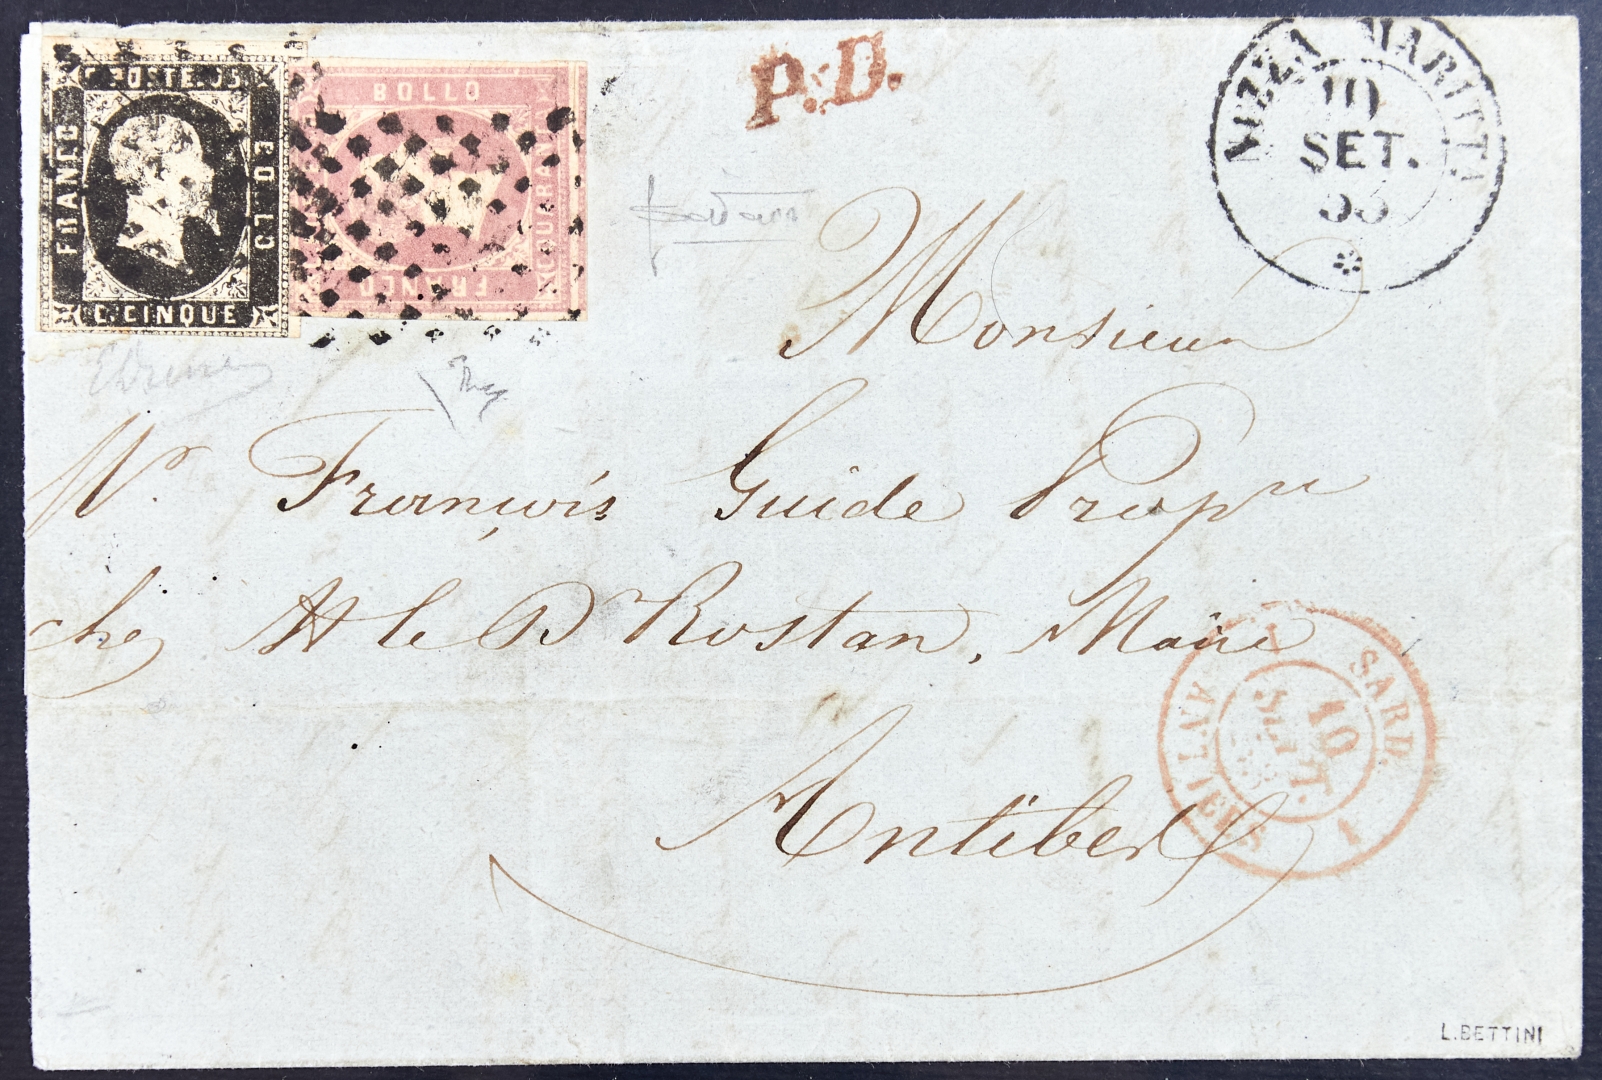 C. POSTE. 05
FRANCO
DI BOLLO
C. CINQUE
BOLLO
C. QUARANTA
FRANCO
P.D.
NIZZA MARITTA
10
SET.
53
Monsieur
Mr. François Guide Propre
chez M le Dr Rostan, Maire
Antibes
1 SARD. 1
ANTIBES
10
SEPT.
53
L. BETTINI